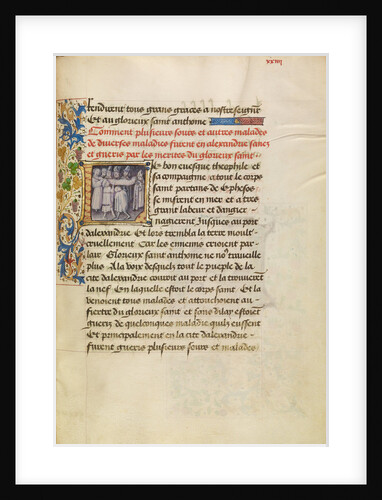 xxiiij
rendirent tous grans graces a nostreseignr
Et au glorieux saint anthoine
Comment plusieurs sours et autres malades
de diverses maladies furent en alexandrie sanez
et gueris par les merites du glorieux saint
Le bon evesque theophile et
sa compaignie atout le corps
saint partans de Ephesos
se misrent en mer et a tres
grant labeur et dangier
nagierent Jusques au port
dalexandrie Et lors trembla la terre moult
cruellement Car les ennemis crioient par
laire Glorieux saint anthoine ne nous traveille
plus A la voix desquels tout le pueple de la
cite dalexandrie couroit au port et la trouverent
la nef En laquelle estoit le corps saint Et la
venoient tous malades et attouchoient au
fiertre du glorieux saint et sans dilay estoient
gueriz de quelconques maladie quilz eussent
Et principalement en la cite dalexandrie
furent gueris plusieurs sours et malades